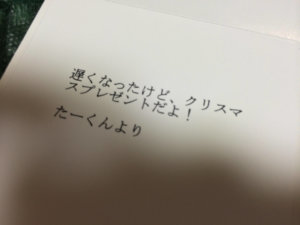 遅くなったけど、クリスマ
スプレゼントだよ！
たーくんより